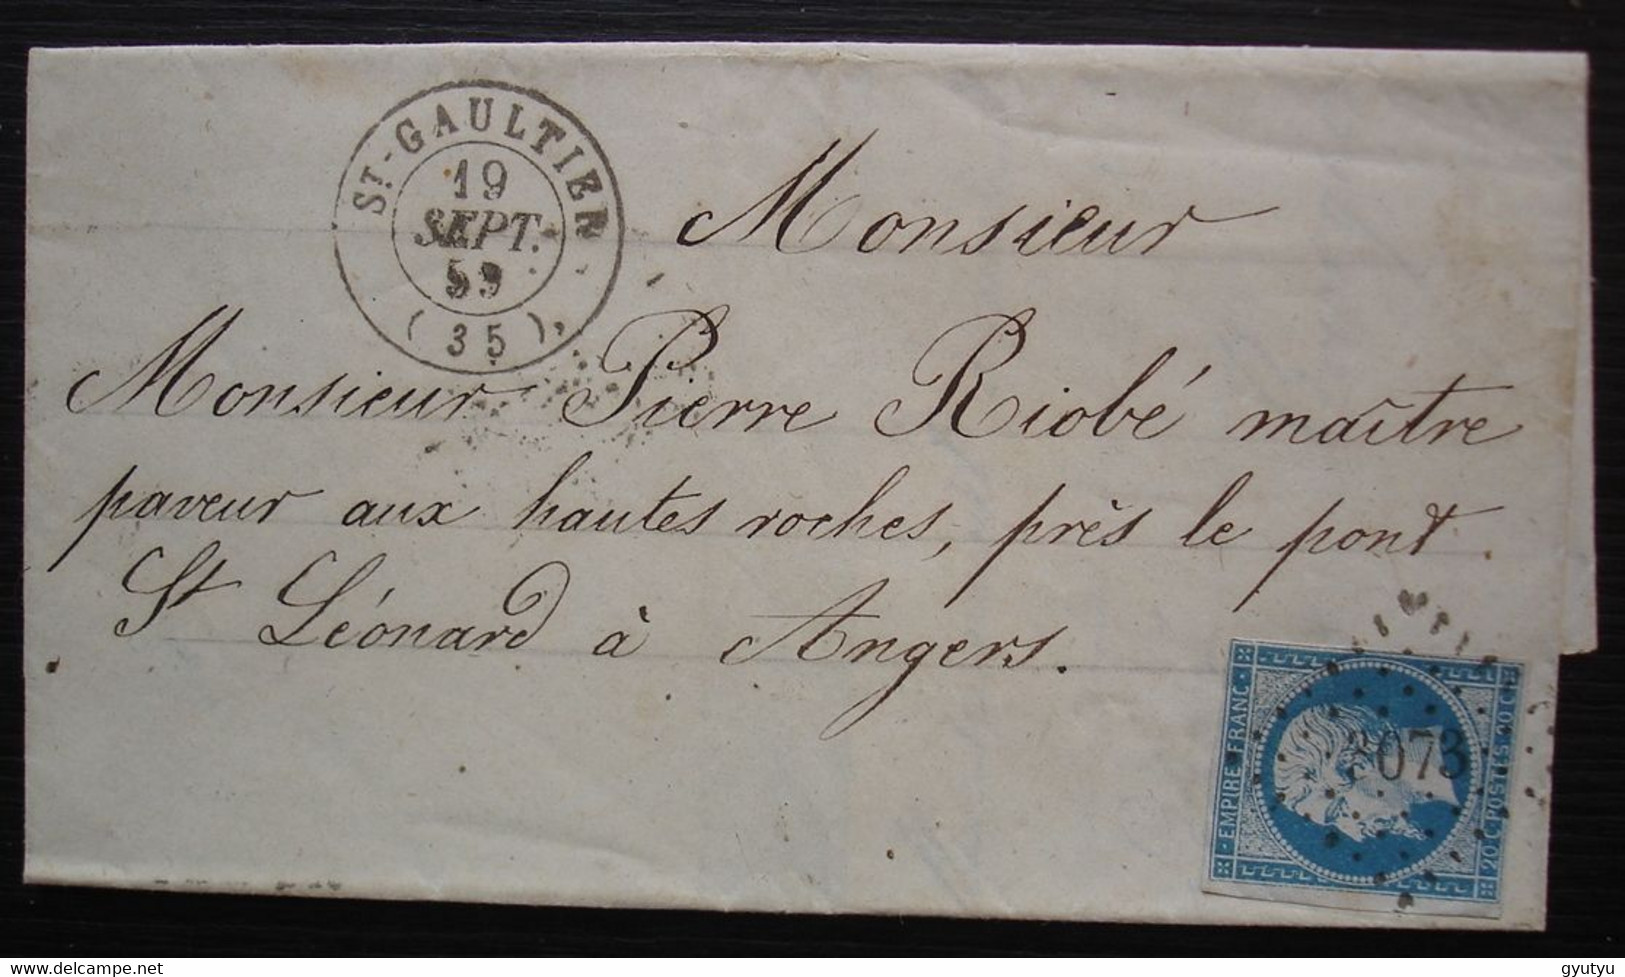 ST-GAULTIER
19
SEPT.
59
(35)
Monsieur
Monsieur Pierre Riobé maître
paveur aux hautes roches, près le pont
St Léonard à Angers.
EMPIRE FRANC.
3073
20 C. POSTES 20 C.
gyutyu